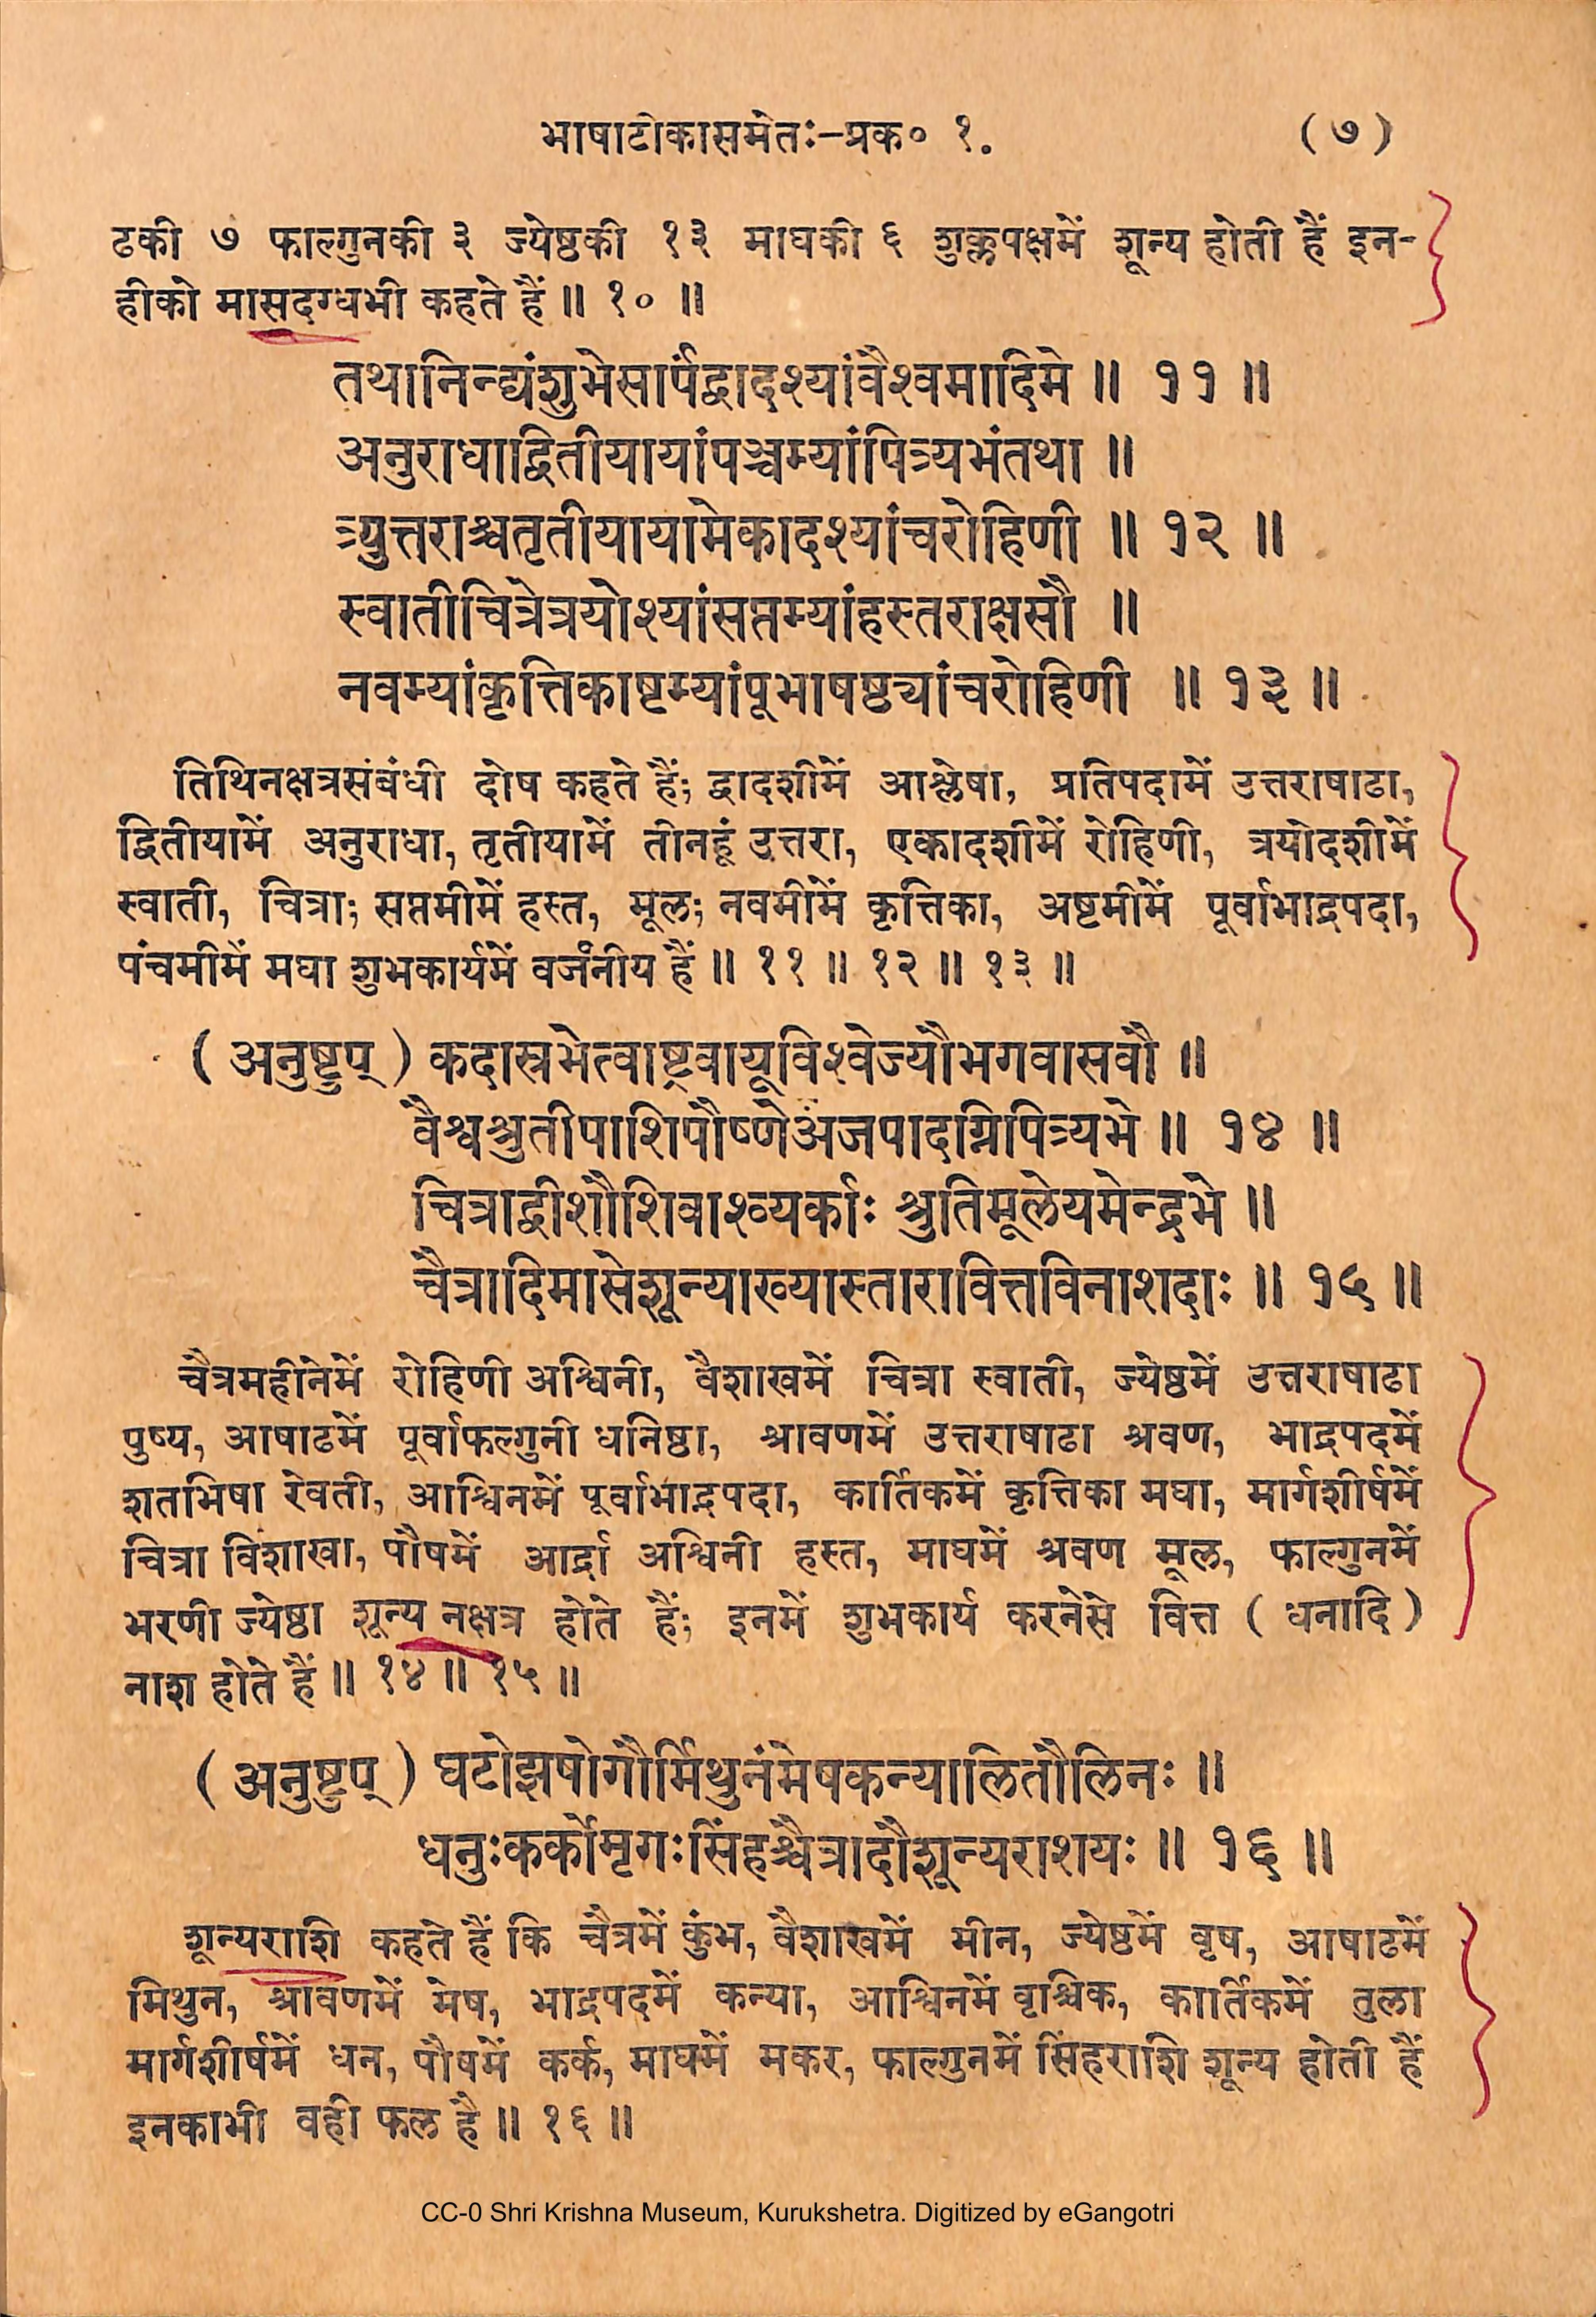 भाषाटीकासमेतः-प्रक० १. (७)
ढकी ७ फाल्गुनकी ३ ज्येष्ठकी १३ माघकी ६ शुक्लपक्षमें शून्य होती हैं इन-
हीको मासदग्धभी कहते हैं ॥ १० ॥
तथानिन्द्यंशुभेसार्पंद्वादश्यांवैश्वमादिमे ॥ ११ ॥
अनुराधाद्वितीयायांपञ्चम्यांपित्र्यभंतथा ॥
त्र्युत्तराश्चतृतीयायामेकादश्यांचरोहिणी ॥ १२ ॥
स्वातीचित्रेत्रयोश्यांसप्तम्यांहस्तराक्षसौ ॥
नवम्यांकृत्तिकाष्टम्यांपूभाषष्ठ्यांचरोहिणी ॥ १३ ॥
तिथिनक्षत्रसंबंधी दोष कहते हैं; द्वादशीमें आश्लेषा, प्रतिपदामें उत्तराषाढा,
द्वितीयामें अनुराधा, तृतीयामें तीनहूं उत्तरा, एकादशीमें रोहिणी, त्रयोदशीमें
स्वाती, चित्रा; सप्तमीमें हस्त, मूल; नवमीमें कृत्तिका, अष्टमीमें पूर्वाभाद्रपदा,
पंचमीमें मघा शुभकार्यमें वर्जनीय हैं ॥ ११ ॥ १२ ॥ १३ ॥
( अनुष्टुप् ) कदास्रभेत्वाष्ट्रवायूविश्वेज्यौभगवासवौ ॥
वैश्वश्रुतीपाशिपौष्णेअजपादग्निपित्र्यभे ॥ १४ ॥
चित्राद्वीशौशिवाश्व्यर्काः श्रुतिमूलेयमेन्द्रभे ॥
चैत्रादिमासेशून्याख्यास्तारावित्तविनाशदाः ॥ १५ ॥
चैत्रमहीनेमें रोहिणी अश्विनी, वैशाखमें चित्रा स्वाती, ज्येष्ठमें उत्तराषाढा
पुष्य, आषाढमें पूर्वाफल्गुनी धनिष्ठा, श्रावणमें उत्तराषाढा श्रवण, भाद्रपदमें
शतभिषा रेवती, आश्विनमें पूर्वाभाद्रपदा, कार्तिकमें कृत्तिका मघा, मार्गशीर्षमें
चित्रा विशाखा, पौषमें आर्द्रा अश्विनी हस्त, माघमें श्रवण मूल, फाल्गुनमें
भरणी ज्येष्ठा शून्य नक्षत्र होते हैं; इनमें शुभकार्य करनेसे वित्त ( धनादि )
नाश होते हैं ॥ १४ ॥ १५ ॥
( अनुष्टुप् ) घटोझषोगौर्मिथुनंमेषकन्यालितौलिनः ॥
धनुःकर्कोमृगःसिंहश्चैत्रादौशून्यराशयः ॥ १६ ॥
शून्यराशि कहते हैं कि चैत्रमें कुंभ, वैशाखमें मीन, ज्येष्ठमें वृष, आषाढमें
मिथुन, श्रावणमें मेष, भाद्रपदमें कन्या, आश्विनमें वृश्चिक, कार्तिकमें तुला
मार्गशीर्षमें धन, पौषमें कर्क, माघमें मकर, फाल्गुनमें सिंहराशि शून्य होती हैं
इनकाभी वही फल है ॥ १६ ॥
CC-0 Shri Krishna Museum, Kurukshetra. Digitized by eGangotri